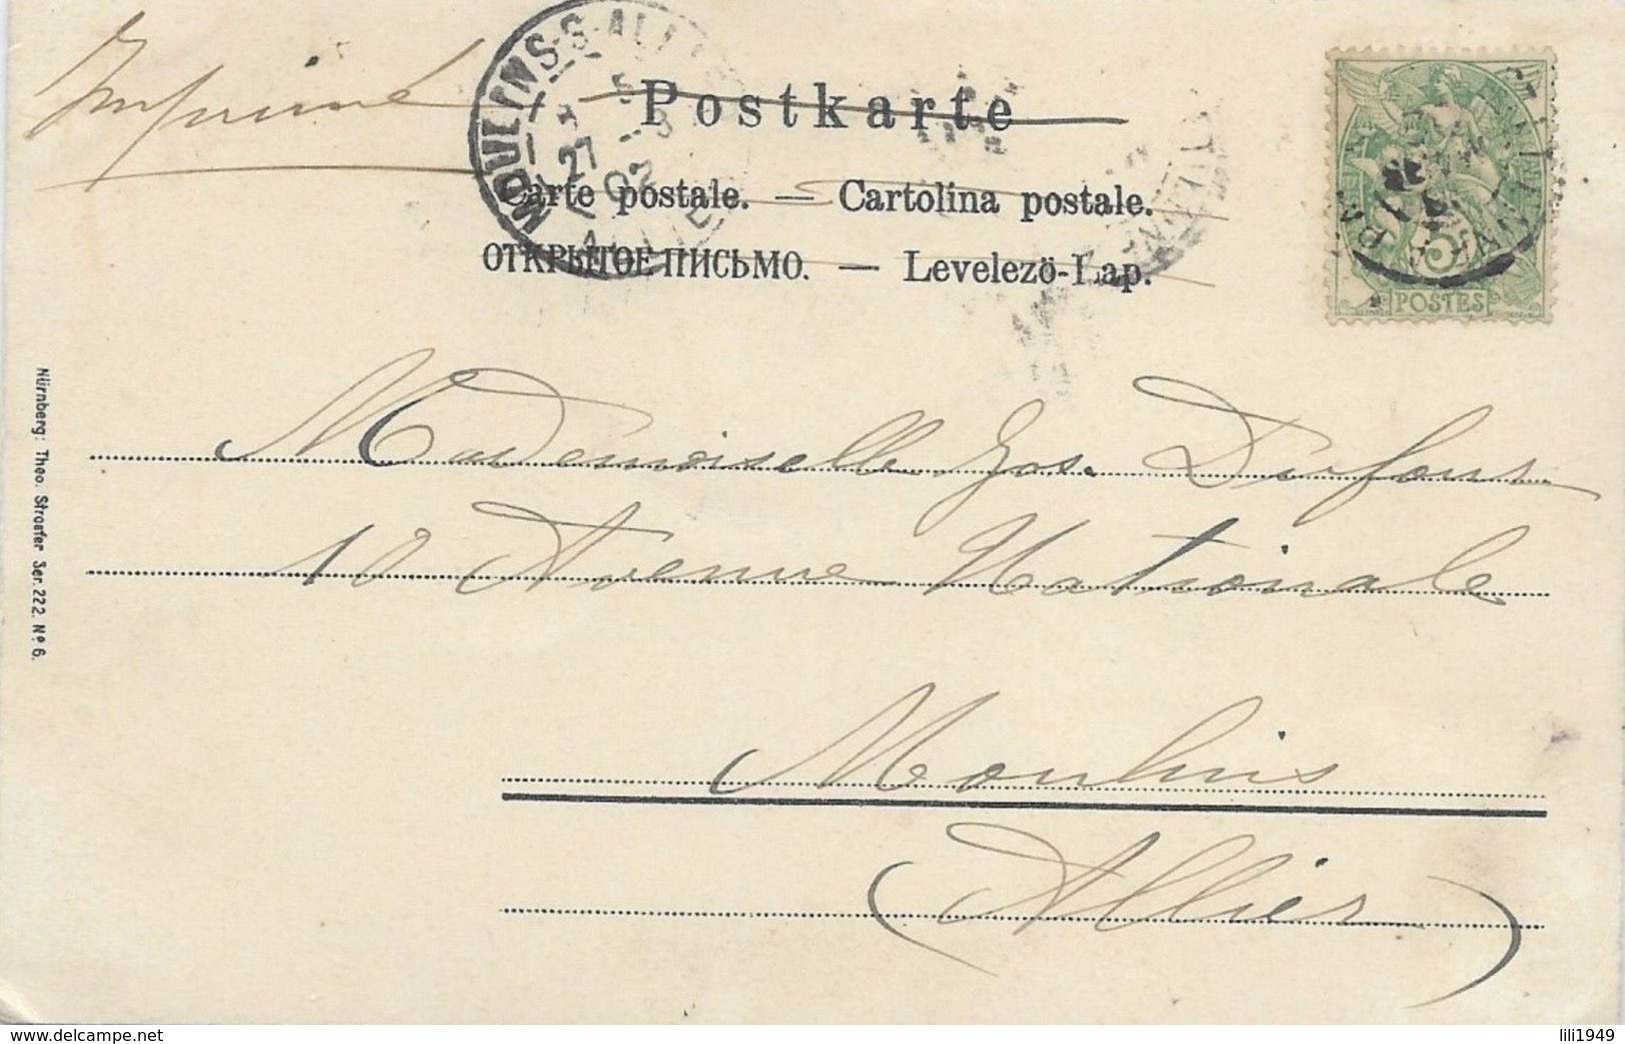 Imprimé
MOULINS-S-ALLIER
27 -8
02
ALLIER
Postkarte
Carte postale. — Cartolina postale.
ОТКРЫТОЕ ПИСЬМО. — Levelezö-Lap.
5
POSTES
Nürnberg: Theo. Stroefer Ser. 222. Nº 6.
Mademoiselle Jos. Dufour
10 Avenue Nationale
Moulins
(Allier)
delcampe.net
lili1949